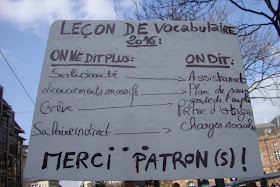 LEÇON DE Vocabulaire
2016 :
ON NE DIT PLUS : ON DIT :
Solidarité → Assistanat
Licenciements massifs → Plan de sauve
garde de l'emploi
Grève → Prise d'otages
Salaire indirect → Charges sociales
MERCI PATRON(S) !